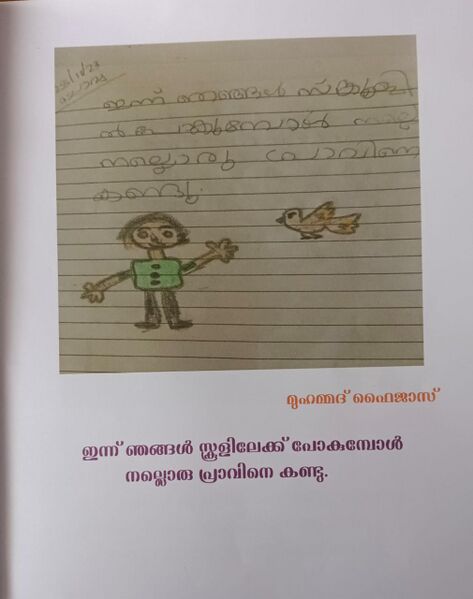 ഇന്ന് ഞങ്ങൾ സ്കൂളി
ൽ പോകുമ്പോൾ
നല്ലൊരു പ്രാവിനെ
കണ്ടു.
മുഹമ്മദ് ഫൈജാസ്
ഇന്ന് ഞങ്ങൾ സ്കൂളിലേക്ക് പോകുമ്പോൾ
നല്ലൊരു പ്രാവിനെ കണ്ടു.